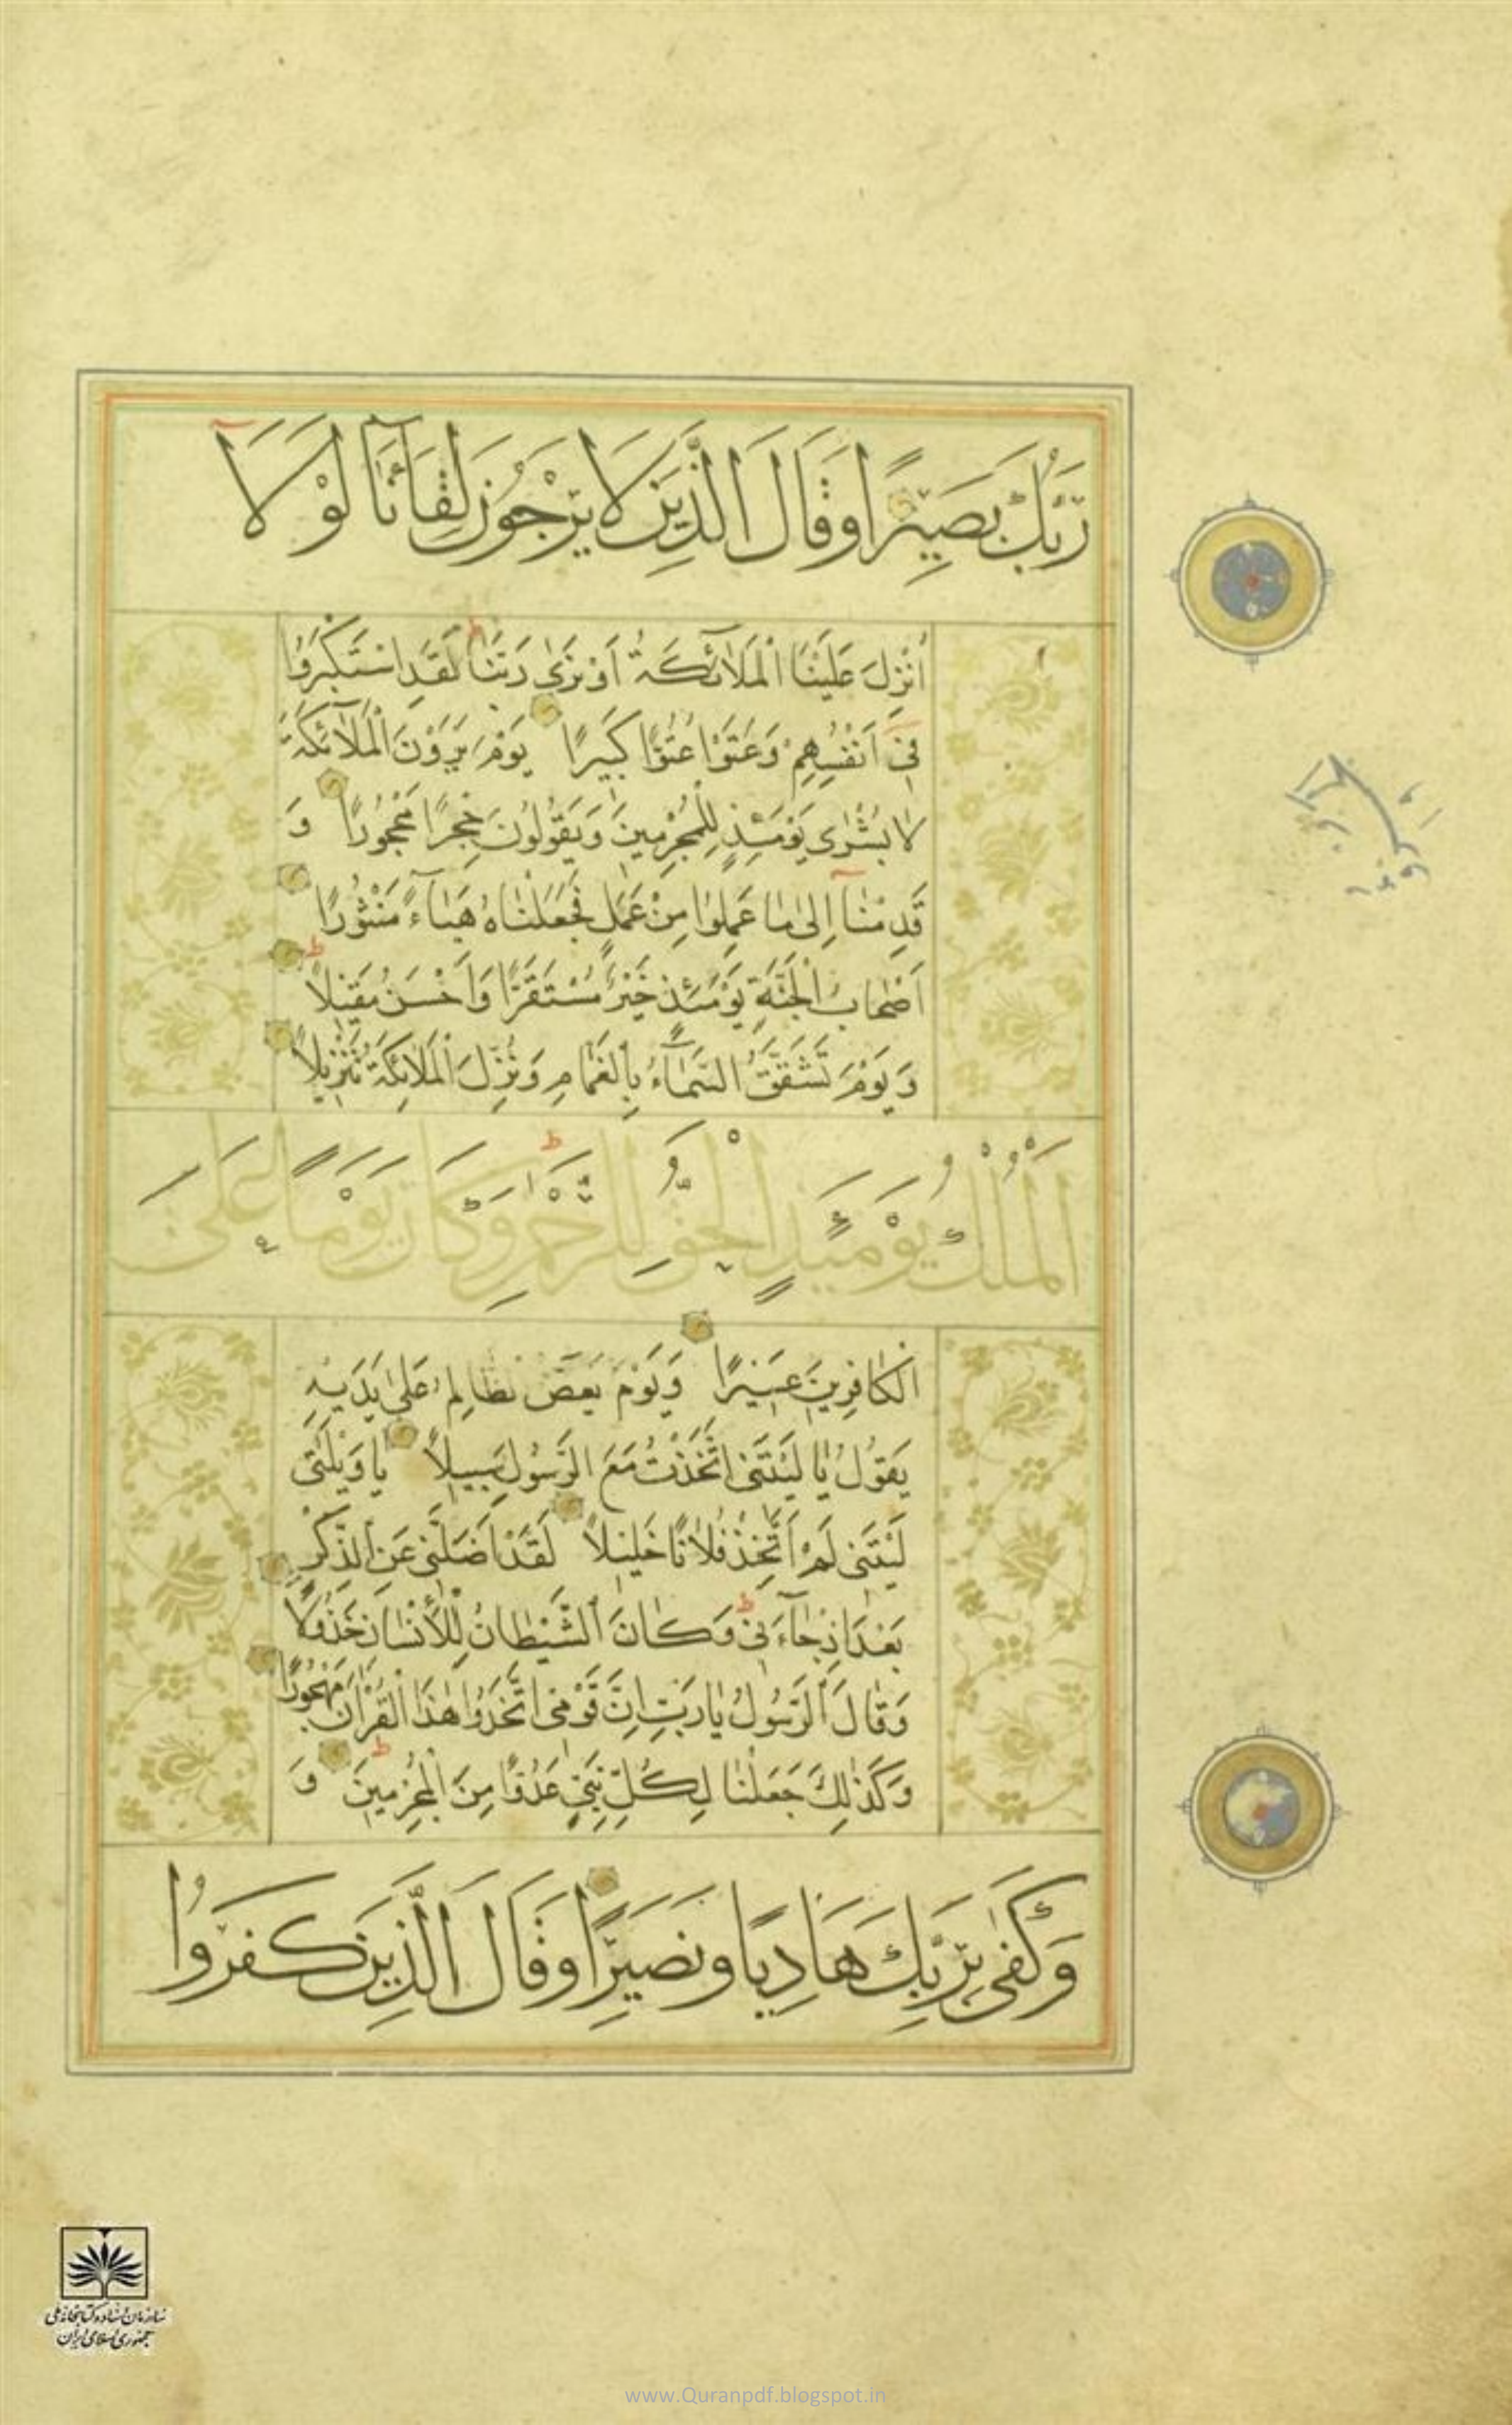 رَبُّكَ بَصِيرًا وَقَالَ الَّذِينَ لَا يَرْجُونَ لِقَاءَنَا لَوْلَا
أُنْزِلَ عَلَيْنَا الْمَلَائِكَةُ أَوْ نَرَى رَبَّنَا لَقَدِ اسْتَكْبَرُوا
فِي أَنْفُسِهِمْ وَعَتَوْا عُتُوًّا كَبِيرًا يَوْمَ يَرَوْنَ الْمَلَائِكَةَ
لَا بُشْرَى يَوْمَئِذٍ لِلْمُجْرِمِينَ وَيَقُولُونَ حِجْرًا مَحْجُورًا وَ
قَدِمْنَا إِلَى مَا عَمِلُوا مِنْ عَمَلٍ فَجَعَلْنَاهُ هَبَاءً مَنْثُورًا
أَصْحَابُ الْجَنَّةِ يَوْمَئِذٍ خَيْرٌ مُسْتَقَرًّا وَأَحْسَنُ مَقِيلًا
وَيَوْمَ تَشَقَّقُ السَّمَاءُ بِالْغَمَامِ وَنُزِّلَ الْمَلَائِكَةُ تَنْزِيلًا
الْمُلْكُ يَوْمَئِذٍ الْحَقُّ لِلرَّحْمَنِ وَكَانَ يَوْمًا عَلَى
الْكَافِرِينَ عَسِيرًا وَيَوْمَ يَعَضُّ الظَّالِمُ عَلَى يَدَيْهِ
يَقُولُ يَا لَيْتَنِي اتَّخَذْتُ مَعَ الرَّسُولِ سَبِيلًا يَا وَيْلَتَى
لَيْتَنِي لَمْ أَتَّخِذْ فُلَانًا خَلِيلًا لَقَدْ أَضَلَّنِي عَنِ الذِّكْرِ
بَعْدَ إِذْ جَاءَنِي وَكَانَ الشَّيْطَانُ لِلْإِنْسَانِ خَذُولًا
وَقَالَ الرَّسُولُ يَا رَبِّ إِنَّ قَوْمِي اتَّخَذُوا هَذَا الْقُرْآنَ مَهْجُورًا
وَكَذَلِكَ جَعَلْنَا لِكُلِّ نَبِيٍّ عَدُوًّا مِنَ الْمُجْرِمِينَ وَ
وَكَفَى بِرَبِّكَ هَادِيًا وَنَصِيرًا وَقَالَ الَّذِينَ كَفَرُوا
سازمان اسناد و کتابخانه ملی
جمهوری اسلامی ایران
www.Quranpdf.blogspot.in